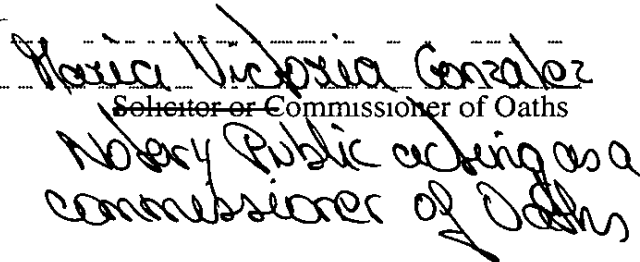 Maria Victoria Gonzalez
Solicitor or Commissioner of Oaths
Notary Public acting as a
commissioner of Oaths